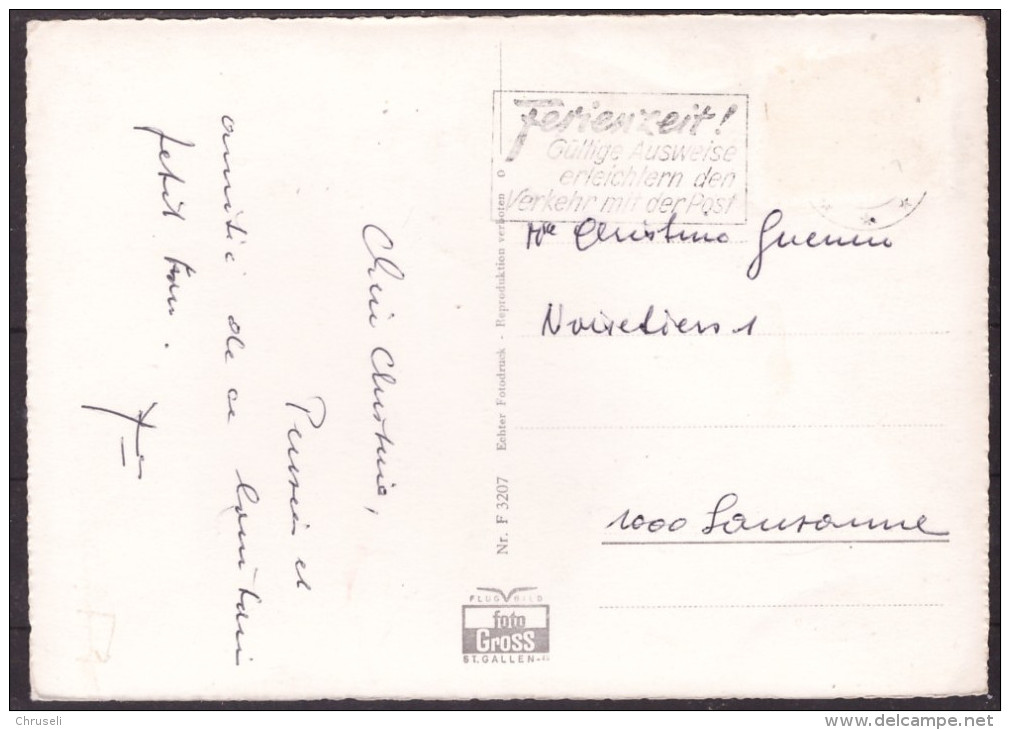 Ferienzeit!
Gültige Ausweise
erleichtern den
Verkehr mit der Post
Mlle Christine Guenin
Noisetiers 1
1000 Lausanne
Chère Christine,
Pensées et
amitié de ce lointain
petit
Nr. F 3207 Echter Fotodruck - Reproduktion verboten
FLUGBILD
foto
Gross
ST.GALLEN
Chruseli
www.delcampe.net